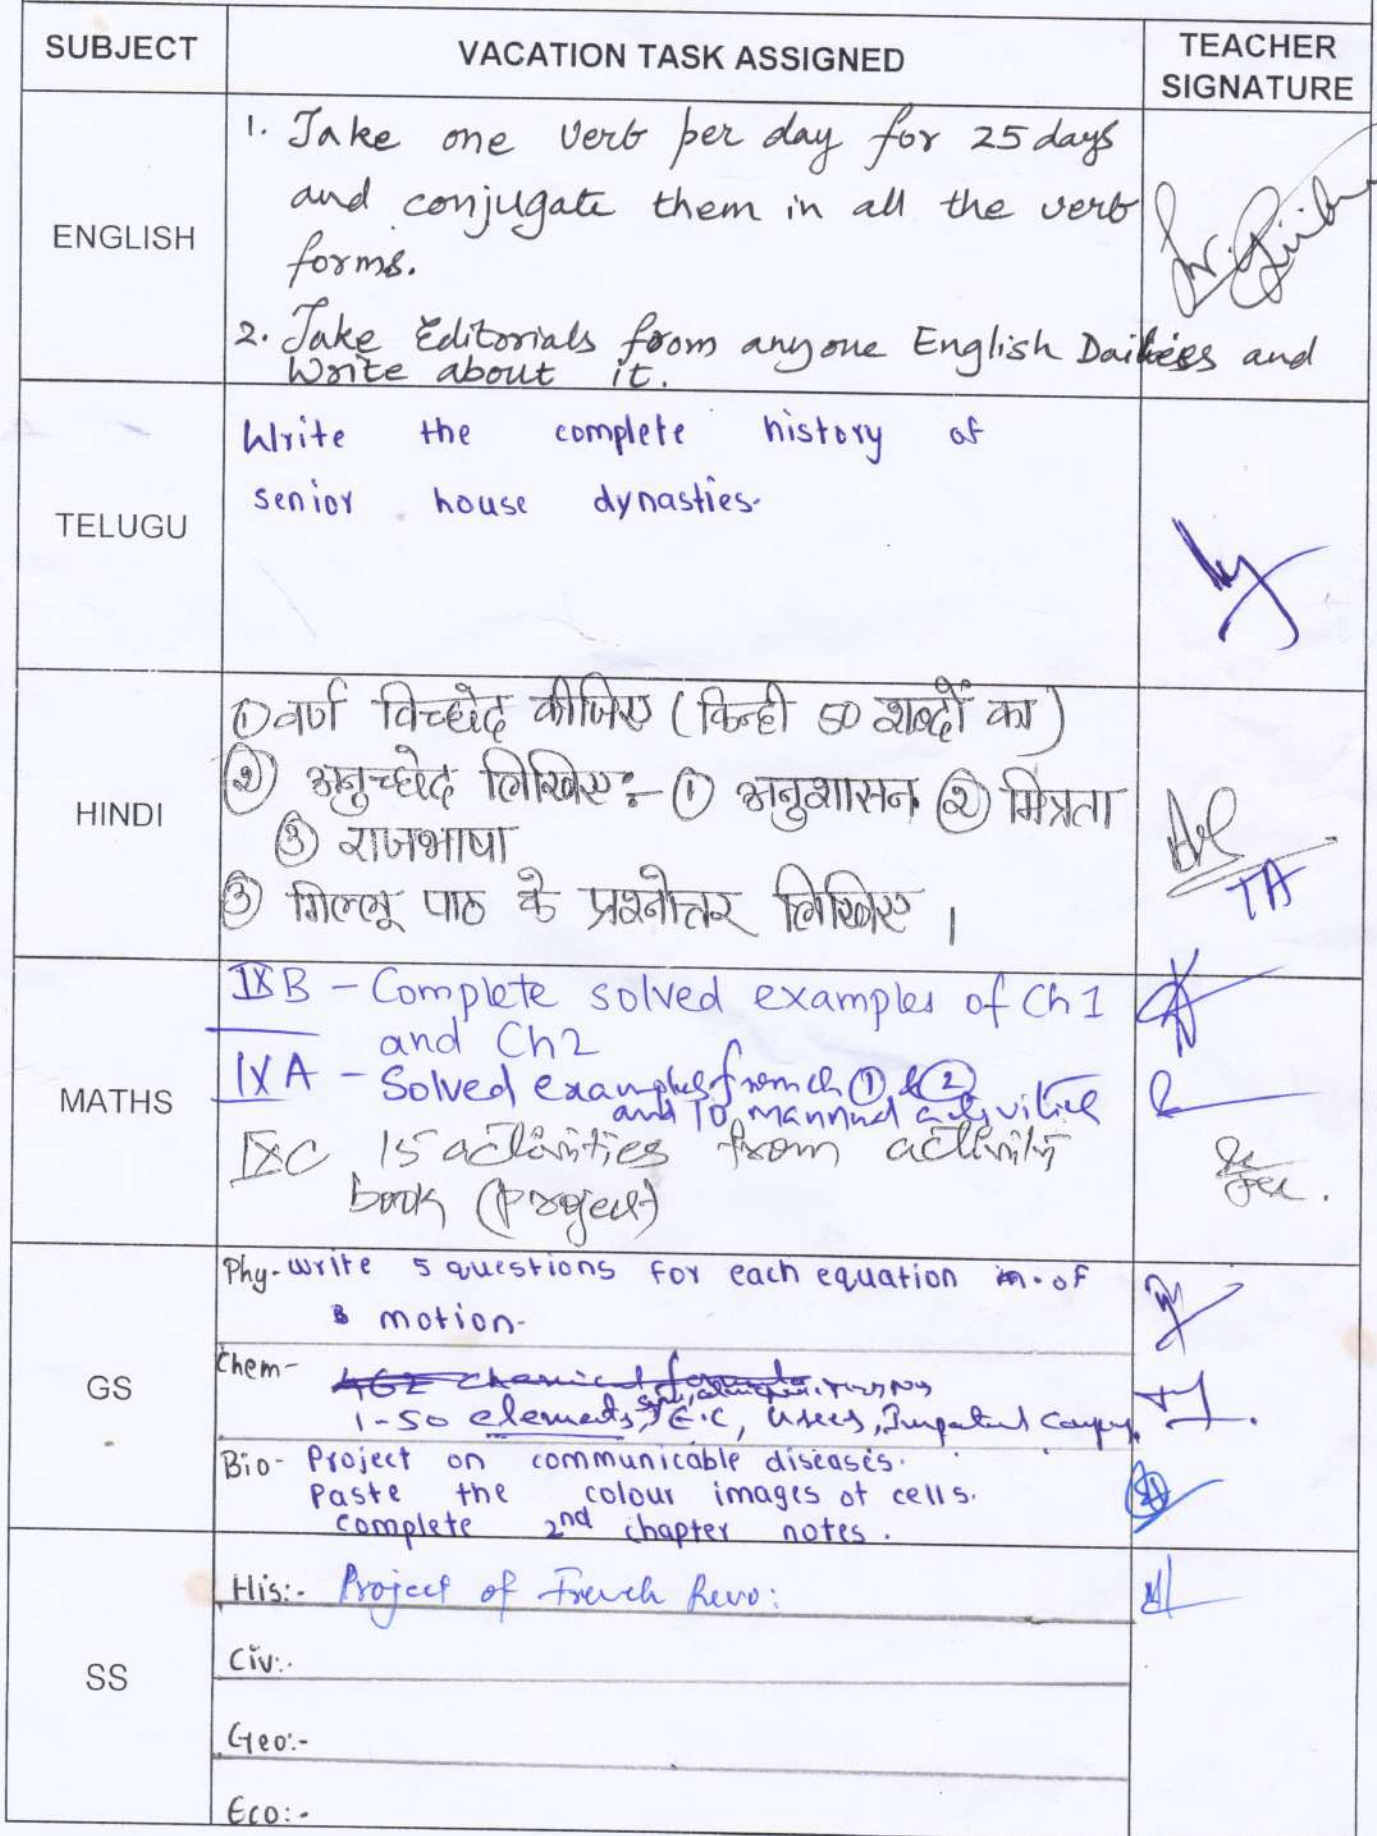 SUBJECT
VACATION TASK ASSIGNED
TEACHER
SIGNATURE
ENGLISH
1. Take one verb per day for 25 days
and conjugate them in all the verb
forms.
2. Take Editorials from anyone English Dailies and
Write about it.
TELUGU
Write the complete history of
senior house dynasties.
HINDI
① वर्ण विच्छेद कीजिए (किन्ही 50 शब्दों का)
② अनुच्छेद लिखिए :- ① अनुशासन ② मित्रता
③ राजभाषा
③ गिल्लू पाठ के प्रश्नोत्तर लिखिए ।
TA
MATHS
IX B - Complete solved examples of Ch 1
and Ch 2
IX A - Solved examples from ch ① & ②
and 10 mannual activities
IX C 15 activities from activity
book (project)
GS
Phy- write 5 questions for each equation of
motion.
Chem-
1-50 elements, E.C, uses,
Bio- Project on communicable diseases.
Paste the colour images of cells.
complete 2nd chapter notes.
SS
His:- Project of French Revo:
Civ:-
Geo:-
Eco:-